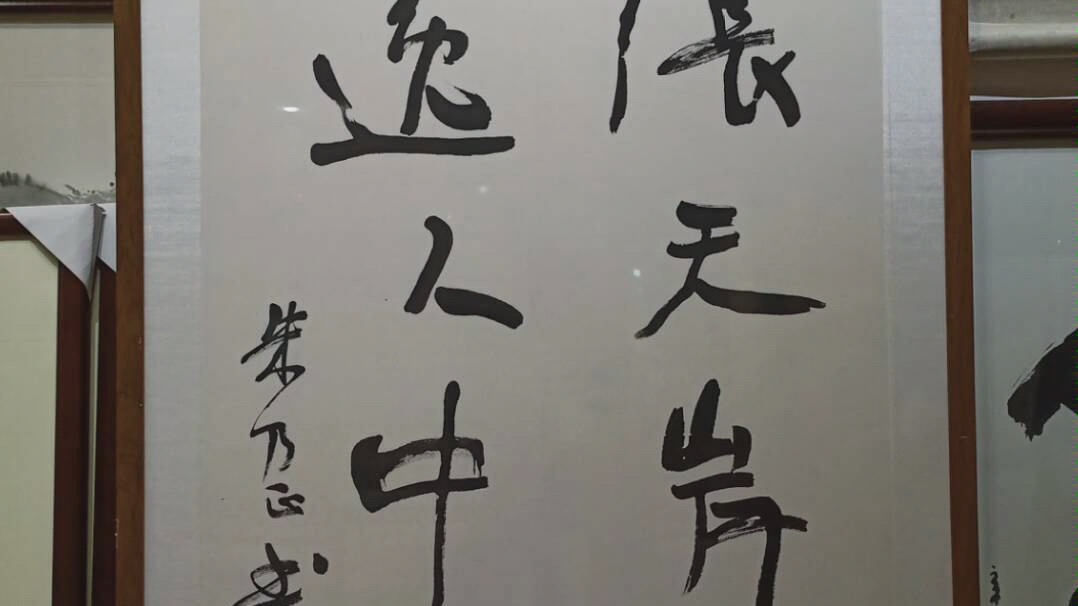 張天岸
逸人中
朱乃正书